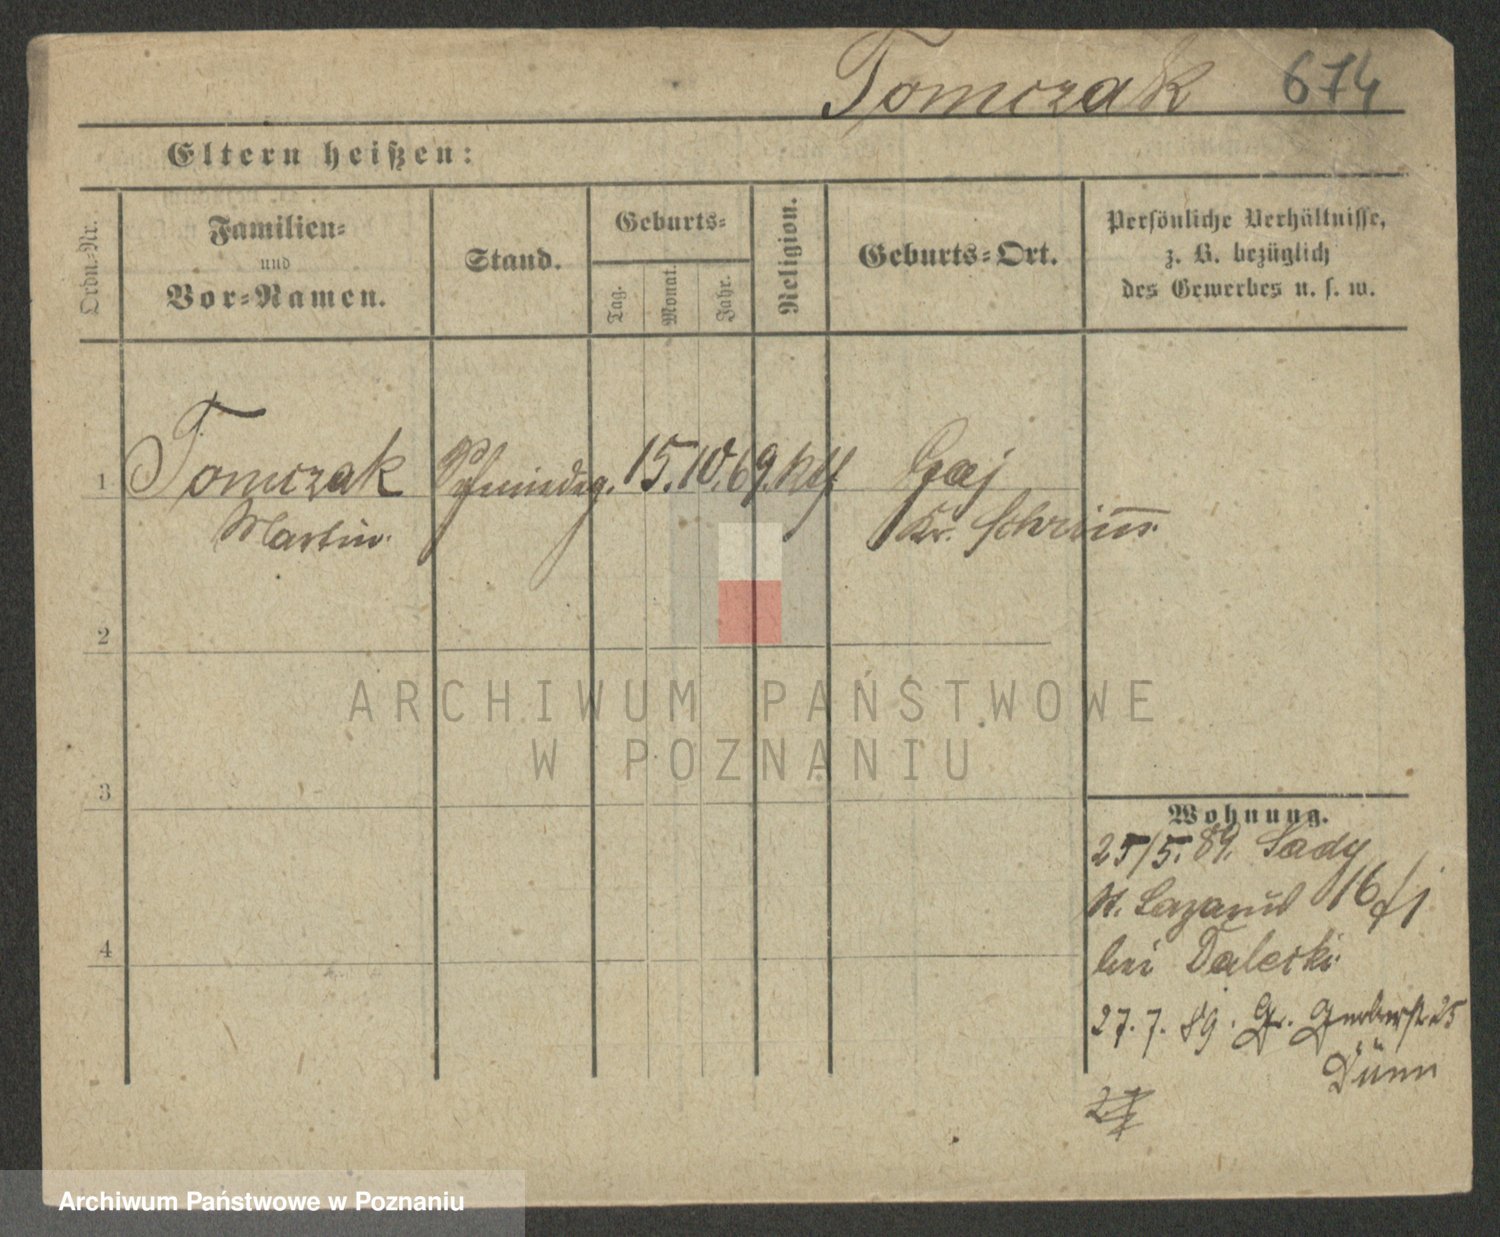 Tomczak 674
Eltern heißen:
Ordn.-Nr.
Familien-
und
Vor-Namen.
Stand.
Geburts-
Tag.
Monat.
Jahr.
Religion.
Geburts-Ort.
Persönliche Verhältnisse,
z. B. bezüglich
des Gewerbes u. s. w.
1 Tomczak 15. 10. 69. kth Gaj
Martin Kr. Schrimm
2
3
4
ARCHIWUM PAŃSTWOWE
W POZNANIU
Wohnung.
25/5. 89. Sady
St. Lazarus 16
bei Dalecki
27. 7. 89. Gr. Gerberstr 25
Dümn
Archiwum Państwowe w Poznaniu